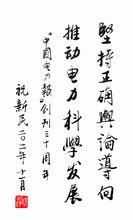 堅持正确輿論導向
推动电力科學发展
《中国电力報》創刊三十周年
祝新民二〇一二年十一月